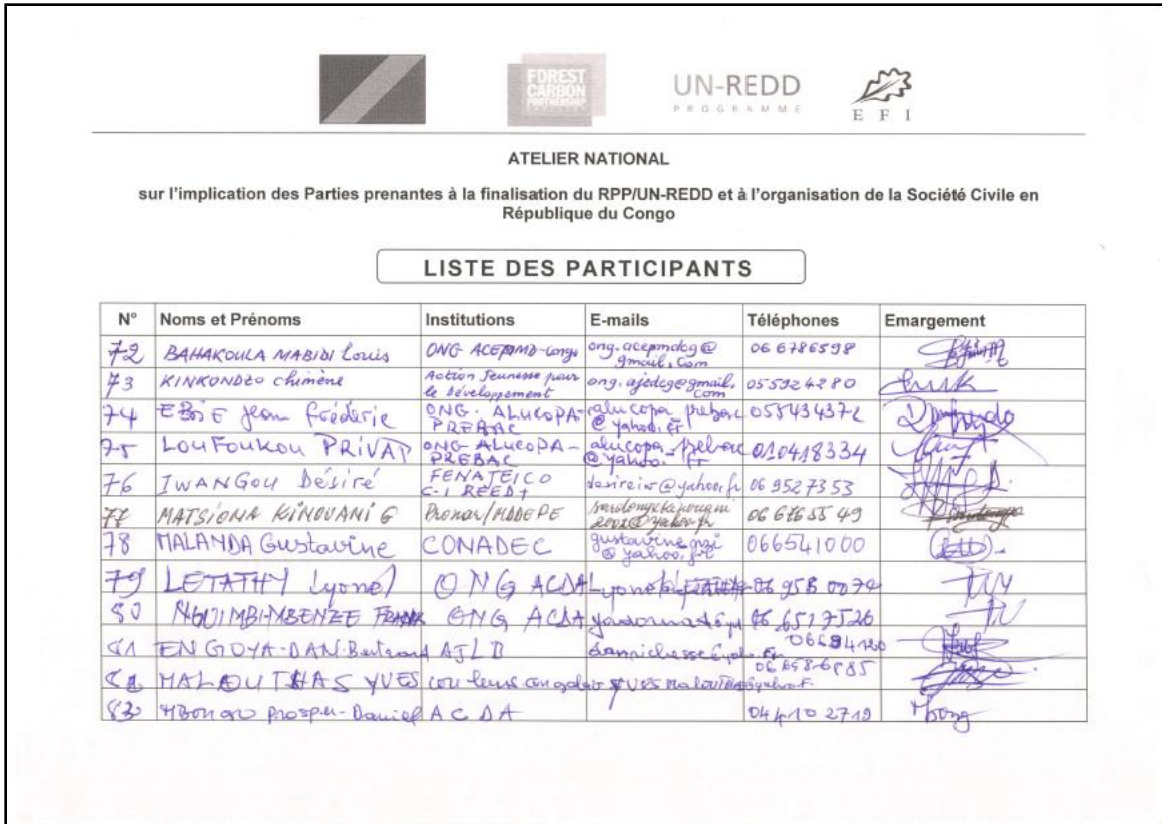 FOREST
CARBON
PARTNERSHIP
UN-REDD
PROGRAMME
EFI
ATELIER NATIONAL
sur l'implication des Parties prenantes à la finalisation du RPP/UN-REDD et à l'organisation de la Société Civile en
République du Congo
LISTE DES PARTICIPANTS
N° Noms et Prénoms Institutions E-mails Téléphones Emargement
72 BAHAKOULA MABIDI Louis ONG ACEPMD-Congo ong.acepmdcg@gmail.com 06 6786598
73 KINKONDZO chimène Action Jeunesse pour le Développement ong.ajedcg@gmail.com 055924280
74 EBIE Jean Fréderic ONG. ALUCOPA-PREBAC alucopa_prebac@yahoo.fr 055434372
75 LOUFOUKOU PRIVAT ONG-ALUCOPA-PREBAC alucopa_prebac@yahoo.fr 010418334
76 IWANGOU Désiré FENATEICO desireiw@yahoo.fr 06 9527353
77 MATSIONA KINOUANI G 06 676 55 49
78 MALANDA Gustavine CONADEC 066541000
79 LETATHY Lyonel ONG ACDA 06 958 0074
80 ONG ACDA 06 651 7526
81 ENGOYA-DAN-Bertrand AJLD
82 MALOUTHAS YVES
83 Prosper-Daniel ACDA 04 410 2719